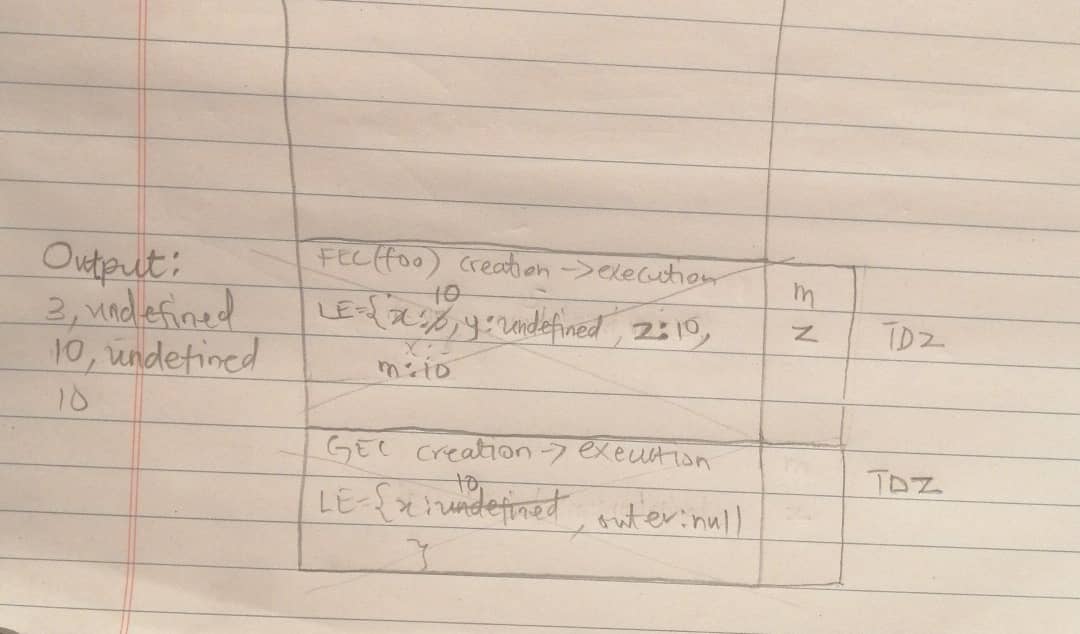 Output:
3, undefined
10, undefined
10
FEC(foo) creation -> execution
10
LE={x:3, y:undefined, z:10,
m:10
m
z
TDZ
GEC creation -> execution
10
LE={x:undefined, outer:null
}
TDZ